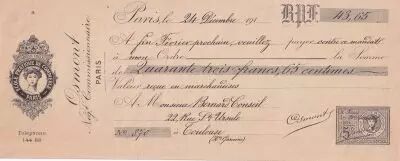 Paris, le 24 Décembre 191
B.P.F. 43,65
A fin Février prochain, veuillez payer contre ce mandat
à mon Ordre la Somme
de Quarante trois francs, 65 centimes
Valeur reçue en marchandises
A Monsieur Bernard Conseil
22, Rue Ste Ursule
No 370 à Toulouse
(Hte Garonne)
Osmont
Négt Commissionnaire
PARIS
PARIS
Téléphone
144.83
Osmont
5